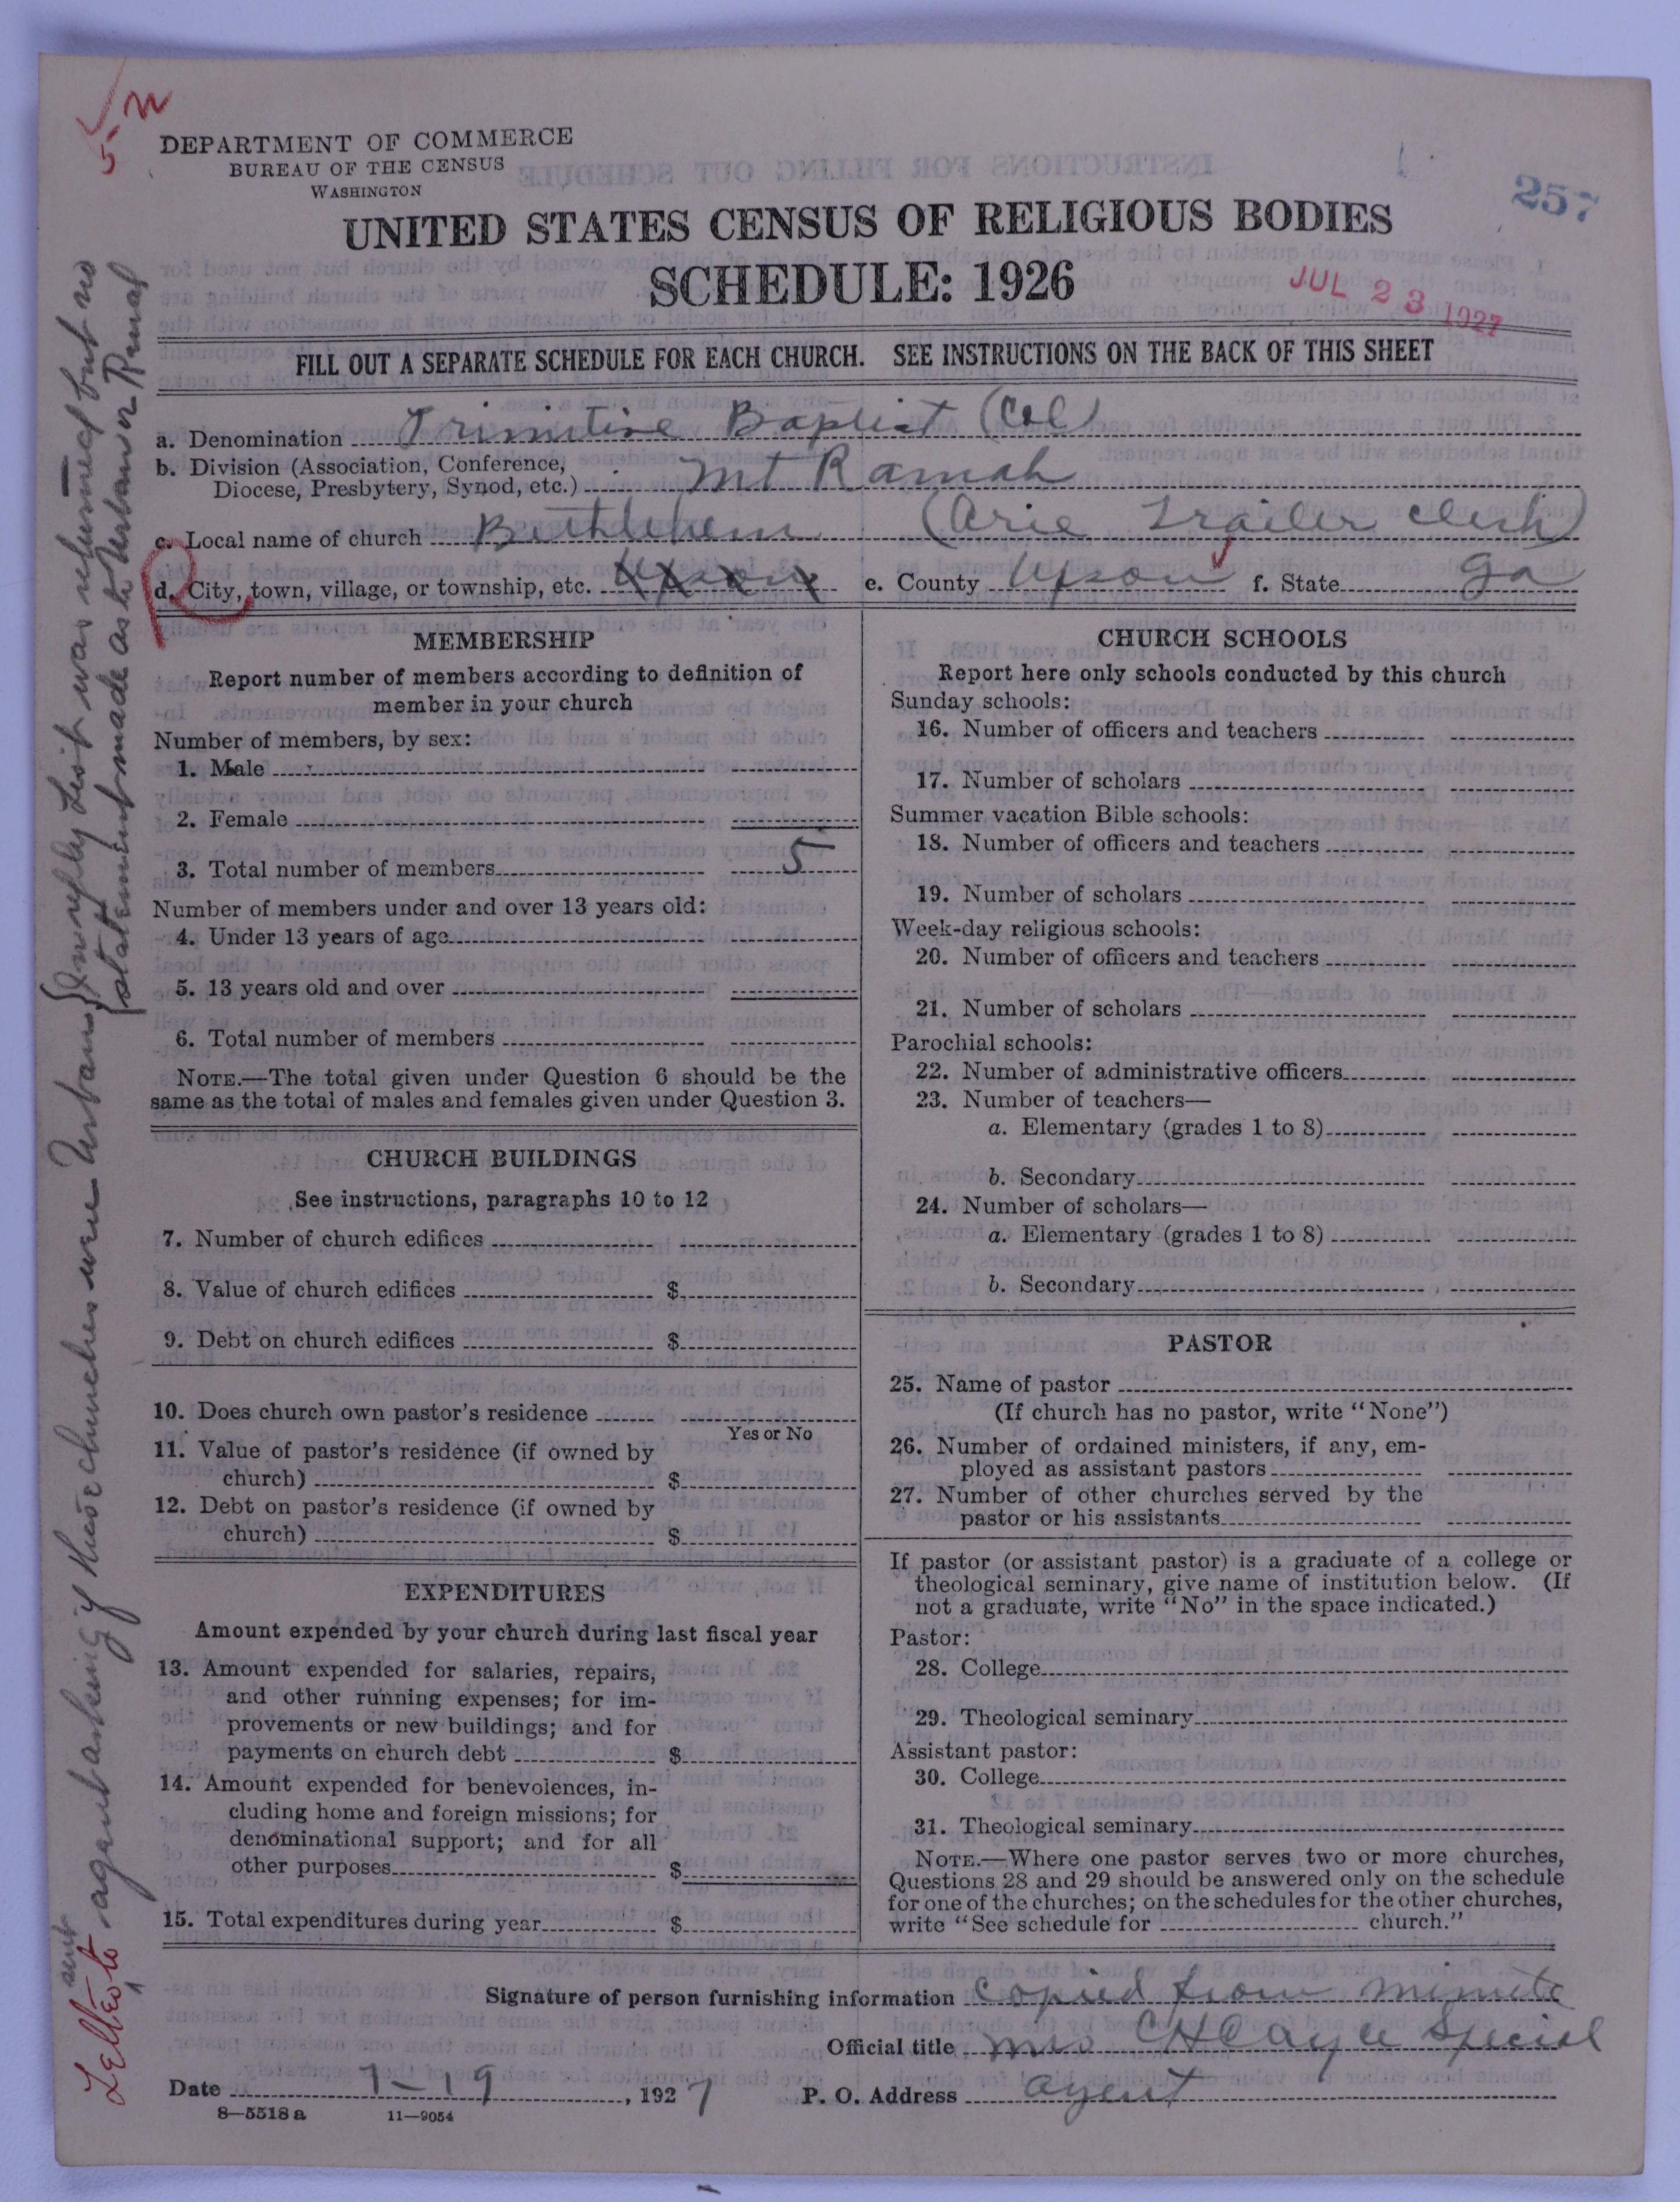 5-n
DEPARTMENT OF COMMERCE
BUREAU OF THE CENSUS
WASHINGTON
257
UNITED STATES CENSUS OF RELIGIOUS BODIES
SCHEDULE: 1926
JUL 23 1927
FILL OUT A SEPARATE SCHEDULE FOR EACH CHURCH. SEE INSTRUCTIONS ON THE BACK OF THIS SHEET
a. Denomination Primitive Baptist (Col)
b. Division (Association, Conference,
Diocese, Presbytery, Synod, etc.) Mt Ramah
c. Local name of church Bethlehem (Arie Trailer clerk)
d. City, town, village, or township, etc. Upson e. County Upson f. State Ga
R
MEMBERSHIP
Report number of members according to definition of
member in your church
Number of members, by sex:
1. Male
2. Female
3. Total number of members 5
Number of members under and over 13 years old:
4. Under 13 years of age
5. 13 years old and over
6. Total number of members
NOTE.—The total given under Question 6 should be the
same as the total of males and females given under Question 3.
CHURCH BUILDINGS
See instructions, paragraphs 10 to 12
7. Number of church edifices
8. Value of church edifices $
9. Debt on church edifices $
10. Does church own pastor's residence
Yes or No
11. Value of pastor's residence (if owned by
church) $
12. Debt on pastor's residence (if owned by
church) $
EXPENDITURES
Amount expended by your church during last fiscal year
13. Amount expended for salaries, repairs,
and other running expenses; for im-
provements or new buildings; and for
payments on church debt $
14. Amount expended for benevolences, in-
cluding home and foreign missions; for
denominational support; and for all
other purposes $
15. Total expenditures during year $
CHURCH SCHOOLS
Report here only schools conducted by this church
Sunday schools:
16. Number of officers and teachers
17. Number of scholars
Summer vacation Bible schools:
18. Number of officers and teachers
19. Number of scholars
Week-day religious schools:
20. Number of officers and teachers
21. Number of scholars
Parochial schools:
22. Number of administrative officers
23. Number of teachers—
a. Elementary (grades 1 to 8)
b. Secondary
24. Number of scholars—
a. Elementary (grades 1 to 8)
b. Secondary
PASTOR
25. Name of pastor
(If church has no pastor, write "None")
26. Number of ordained ministers, if any, em-
ployed as assistant pastors
27. Number of other churches served by the
pastor or his assistants
If pastor (or assistant pastor) is a graduate of a college or
theological seminary, give name of institution below. (If
not a graduate, write "No" in the space indicated.)
Pastor:
28. College
29. Theological seminary
Assistant pastor:
30. College
31. Theological seminary
NOTE.—Where one pastor serves two or more churches,
Questions 28 and 29 should be answered only on the schedule
for one of the churches; on the schedules for the other churches,
write "See schedule for church."
Signature of person furnishing information Copied from minute
Official title Mrs C H Cayce Special
Date 7-19, 1927 P. O. Address agent
8—5518 a 11—9054
Letter sent to agent asking if these churches were Urban
In reply List was returned but no
statement made as to Urban or Rural